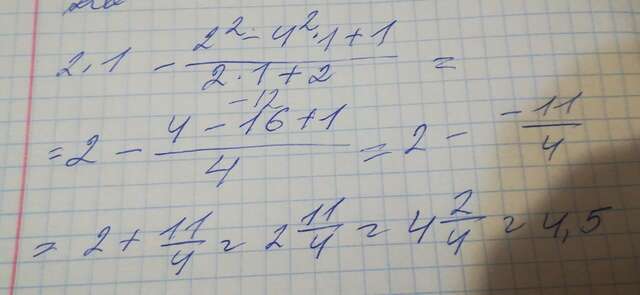 2·1 - (2² - 4²·1 + 1)/(2·1 + 2) =
-12
= 2 - (4 - 16 + 1)/4 = 2 - (-11)/4
= 2 + 11/4 = 2 11/4 = 4 2/4 = 4,5